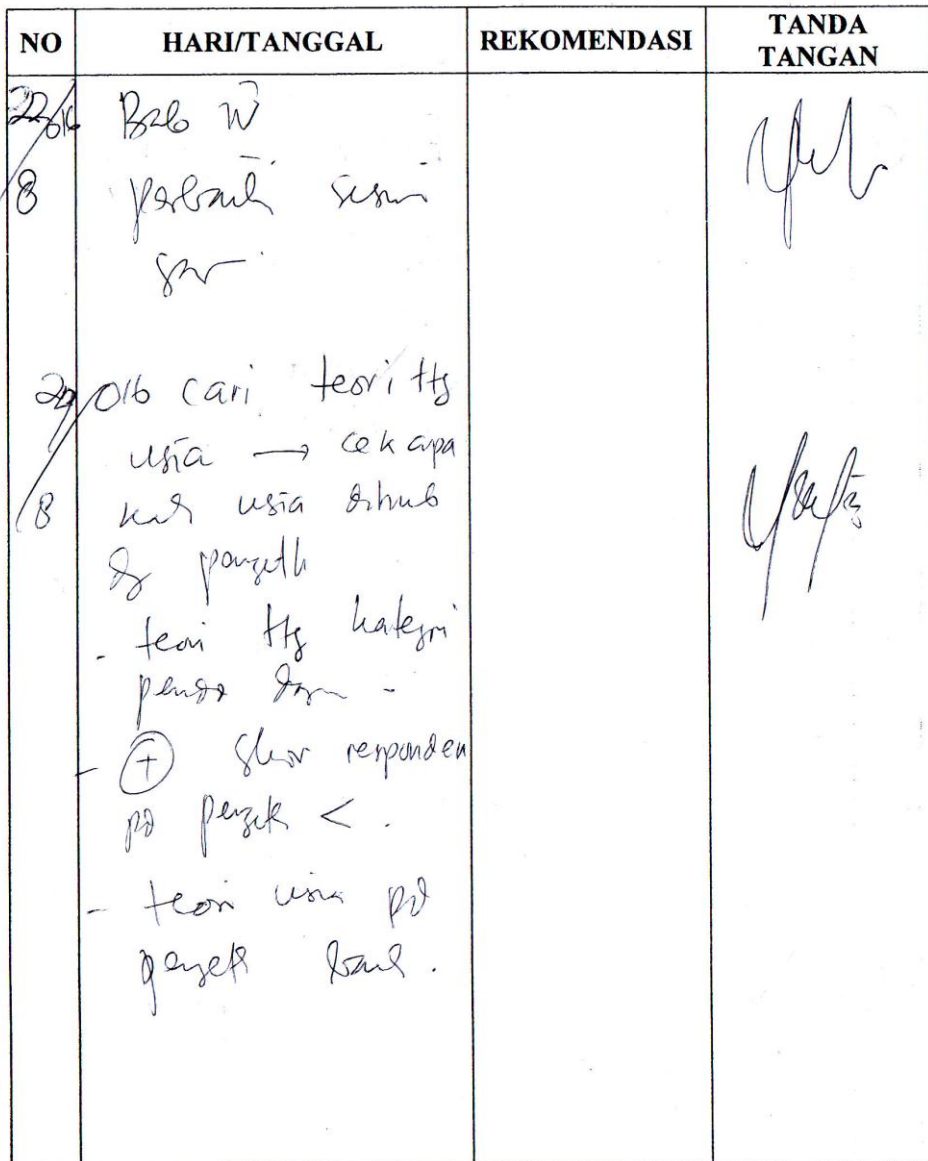 NO HARI/TANGGAL REKOMENDASI TANDA TANGAN
22/016 Bab IV
8 perbaiki sesuai
saran
016 cari teori ttg
usia → cek apa
kah usia dihub
dg pengeth
- teori ttg kategori
- + skor responden
pd pengeth < .
- teori usia pd
pengeth baik .